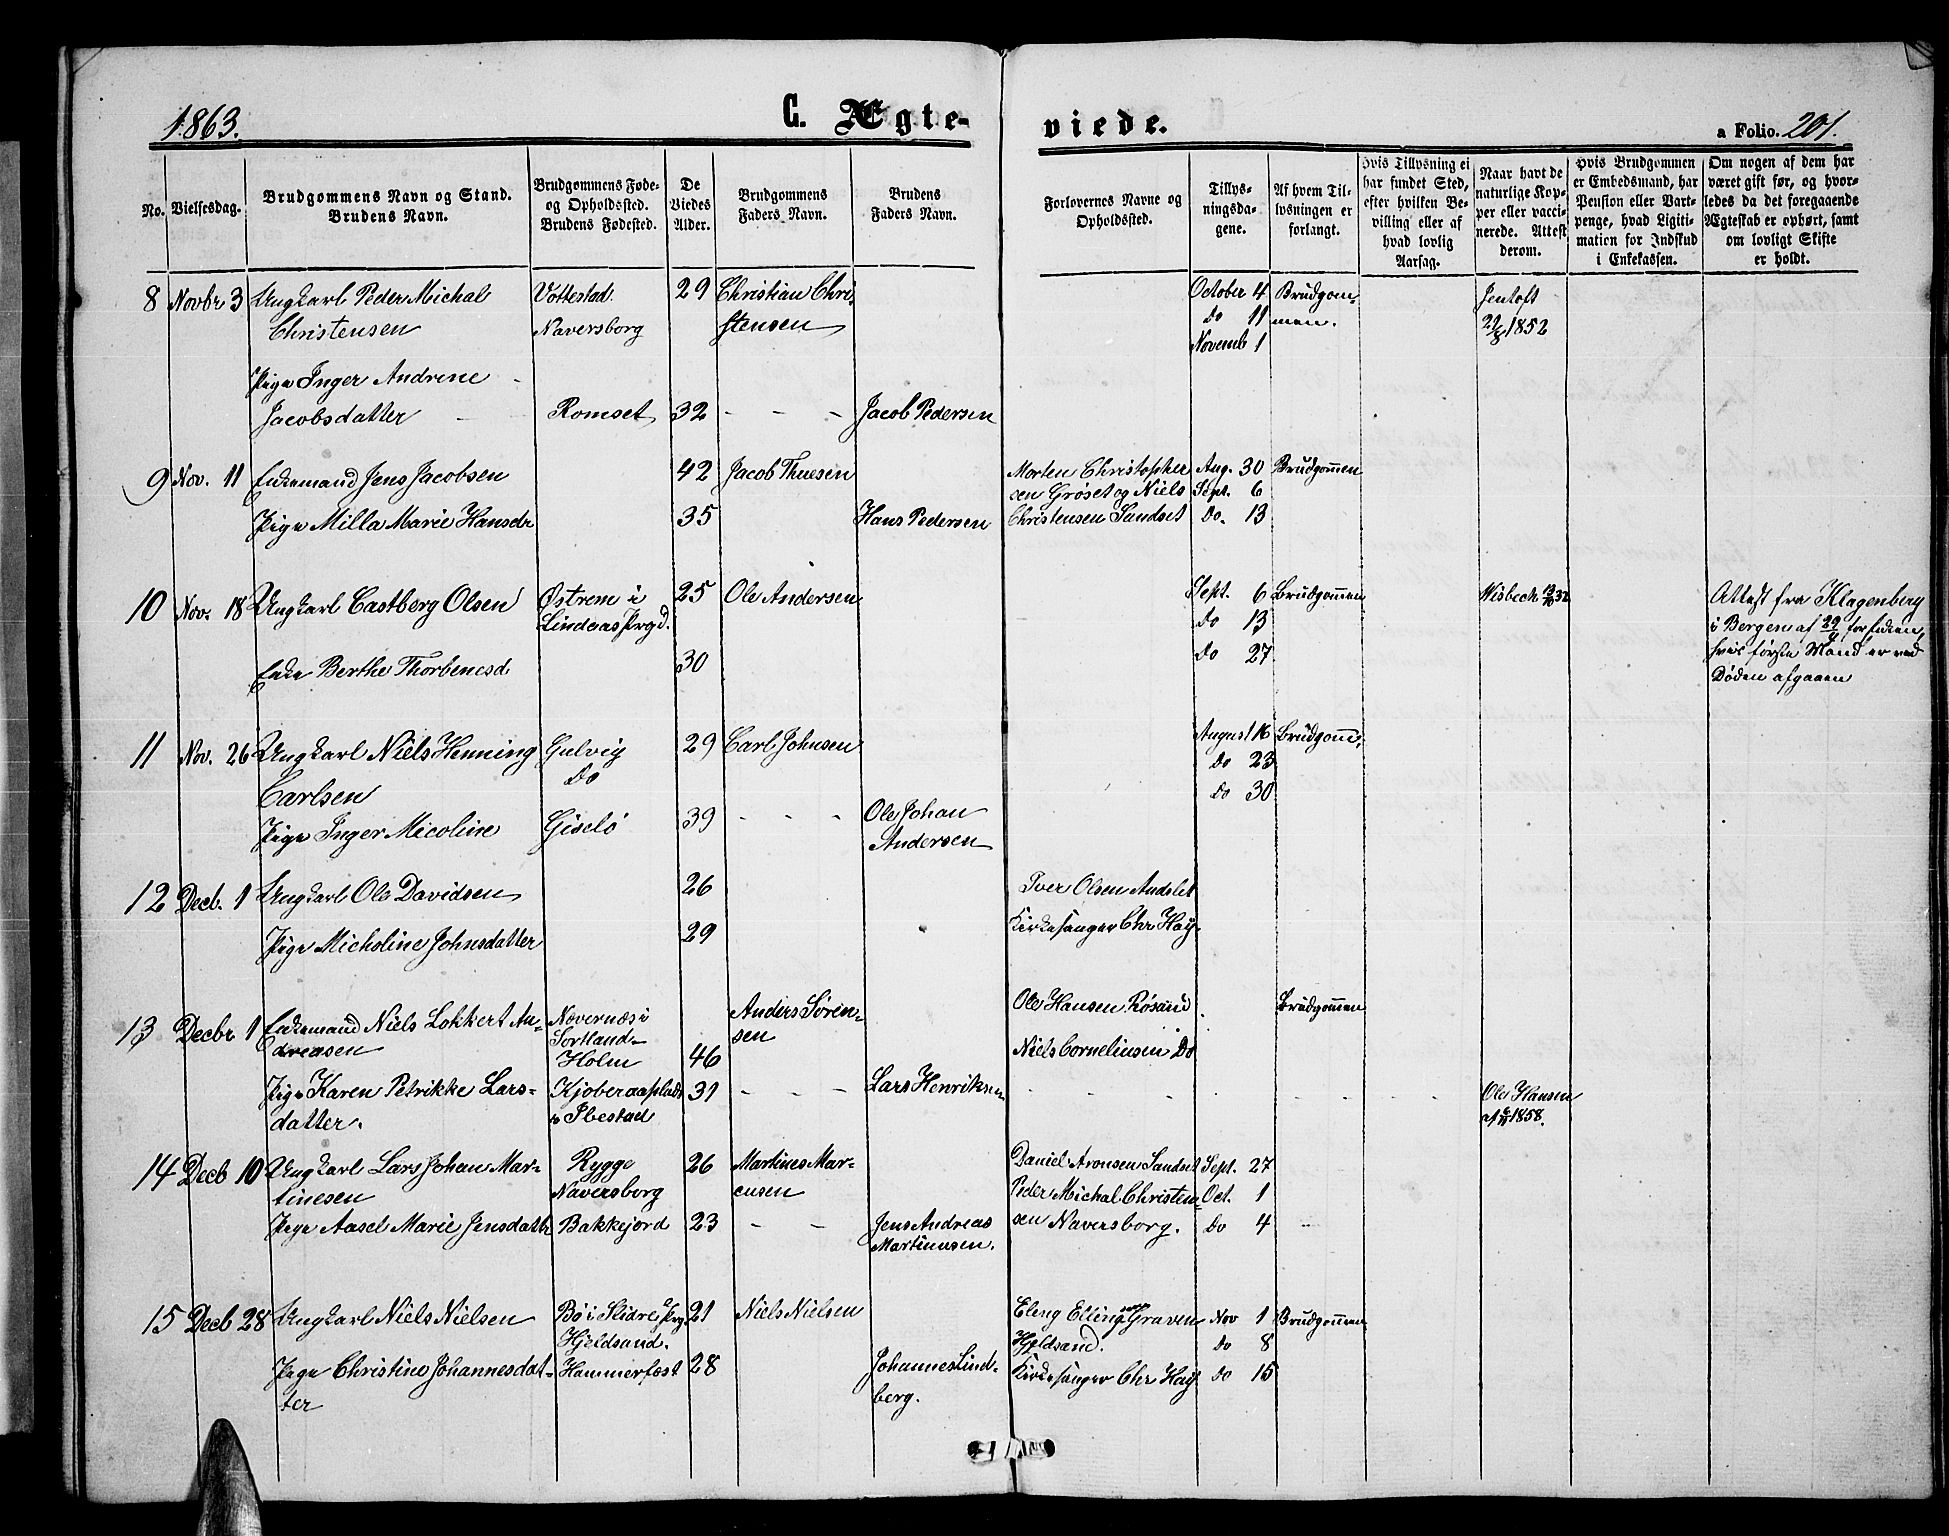 1863.
C. Ægte-
viede.
a Folio. 201.
No.
Vielsesdag.
Brudgommens Navn og Stand.
Brudens Navn.
Brudgommens Føde-
og Opholdssted.
Brudens Fødested.
De
Viedes
Alder.
Brudgommens
Faders Navn.
Brudens
Faders Navn.
Forlovernes Navne og
Opholdssted.
Tillys-
ningsda-
gene.
Af hvem Til-
lysningen er
forlangt.
Hvis Tillysning ei
har fundet Sted,
efter hvilken Be-
villing eller af
hvad lovlig
Aarsag.
Naar havt de
naturlige Kop-
per eller vacci-
nerede. Attest
derom.
Hvis Brudgommen
er Embedsmand, har
Pension eller Vart-
penge, hvad Ligiti-
mation for Indskud
i Enkekassen.
Om nogen af dem har
været gift før, og hvor-
ledes da det foregaaende
Ægteskab er ophørt, samt
om lovligt Skifte
er holdt.
8 Novbr 3 Ungkarl Peder Michal Vottestad 29 Christian Chri- October 4 Brudgom- Jentoft
Christensen Naversborg stensen Do 11 men. 1852
Novemb 1
Pige Inger Andrene
Jacobsdatter Romset 32 - - - Jacob Pedersen
9 Nov. 11 Enkemand Jens Jacobsen 42 Jacob Thuesen Morten Christopher Aug. 30 Brudgommen
sen Grøset og Niels Sept. 6
Pige Milla Marie Hansdr 35 Hans Pedersen Christensen Sandset Do. 13
10 Nov. 18 Ungkarl Castberg Olsen Østrem i 25 Ole Andersen Sept. 6 Brudgommen Wisbech Attest fra Klagenberg
Lindaas Prgd. Do 13 i Bergen af 29/9 for Enken,
Enke Berthe Thorbenesd 30 Do 27 hvis første Mand er ved
Døden afgaaen
11 Nov. 26 Ungkarl Niels Henning Gulvig 29 Carl Johnsen August 16 Brudgom,
Do Do 23
Carlsen Do 30
Pige Inger Micoline Giselø 39 - - - Ole Johan
Andersen
12 Decb. 1 Ungkarl Ole Davidsen 26 Iver Olsen
Pige Micholine Johnsdatter 29 Kirkesanger Chr Høy
13 Decbr 1 Enkemand Niels Lokkert An- Nøvernæs i Anders Søren- Ole Hansen Røsand Brudgommen
dreasen Sortland- sen
Holm 46 Niels Corneliusen Do
Pige Karen Petrikke Lars- Kjoberaaplads 31 - - - Lars Henriksen Ole Hansen
datter. i Ibestad 1858.
14 Decb 10 Ungkarl Lars Johan Mar- Rygge 26 Martines Mar- Daniel Aronsen Sandset Sept. 27
tinesen Naversborg cusen Peder Michal Christen- Oct. 1
Pige Aasel Marie Jensdattr Bakkejord 23 - - Jens Andreas sen Naversborg. Do 4
Martinusen.
15 Decb 28 Ungkarl Niels Nielsen Bø i Slidre Prg 21 Niels Nielsen Eleng Ellingsen Graven Nov 1 Brudgommen
Hjeldsand. Hjeldsand. Do 8
Pige Christine Johannesdat- Hammerfest 28 Johannes Lind- Kirkesanger Chr Høy Do 15
ter berg.